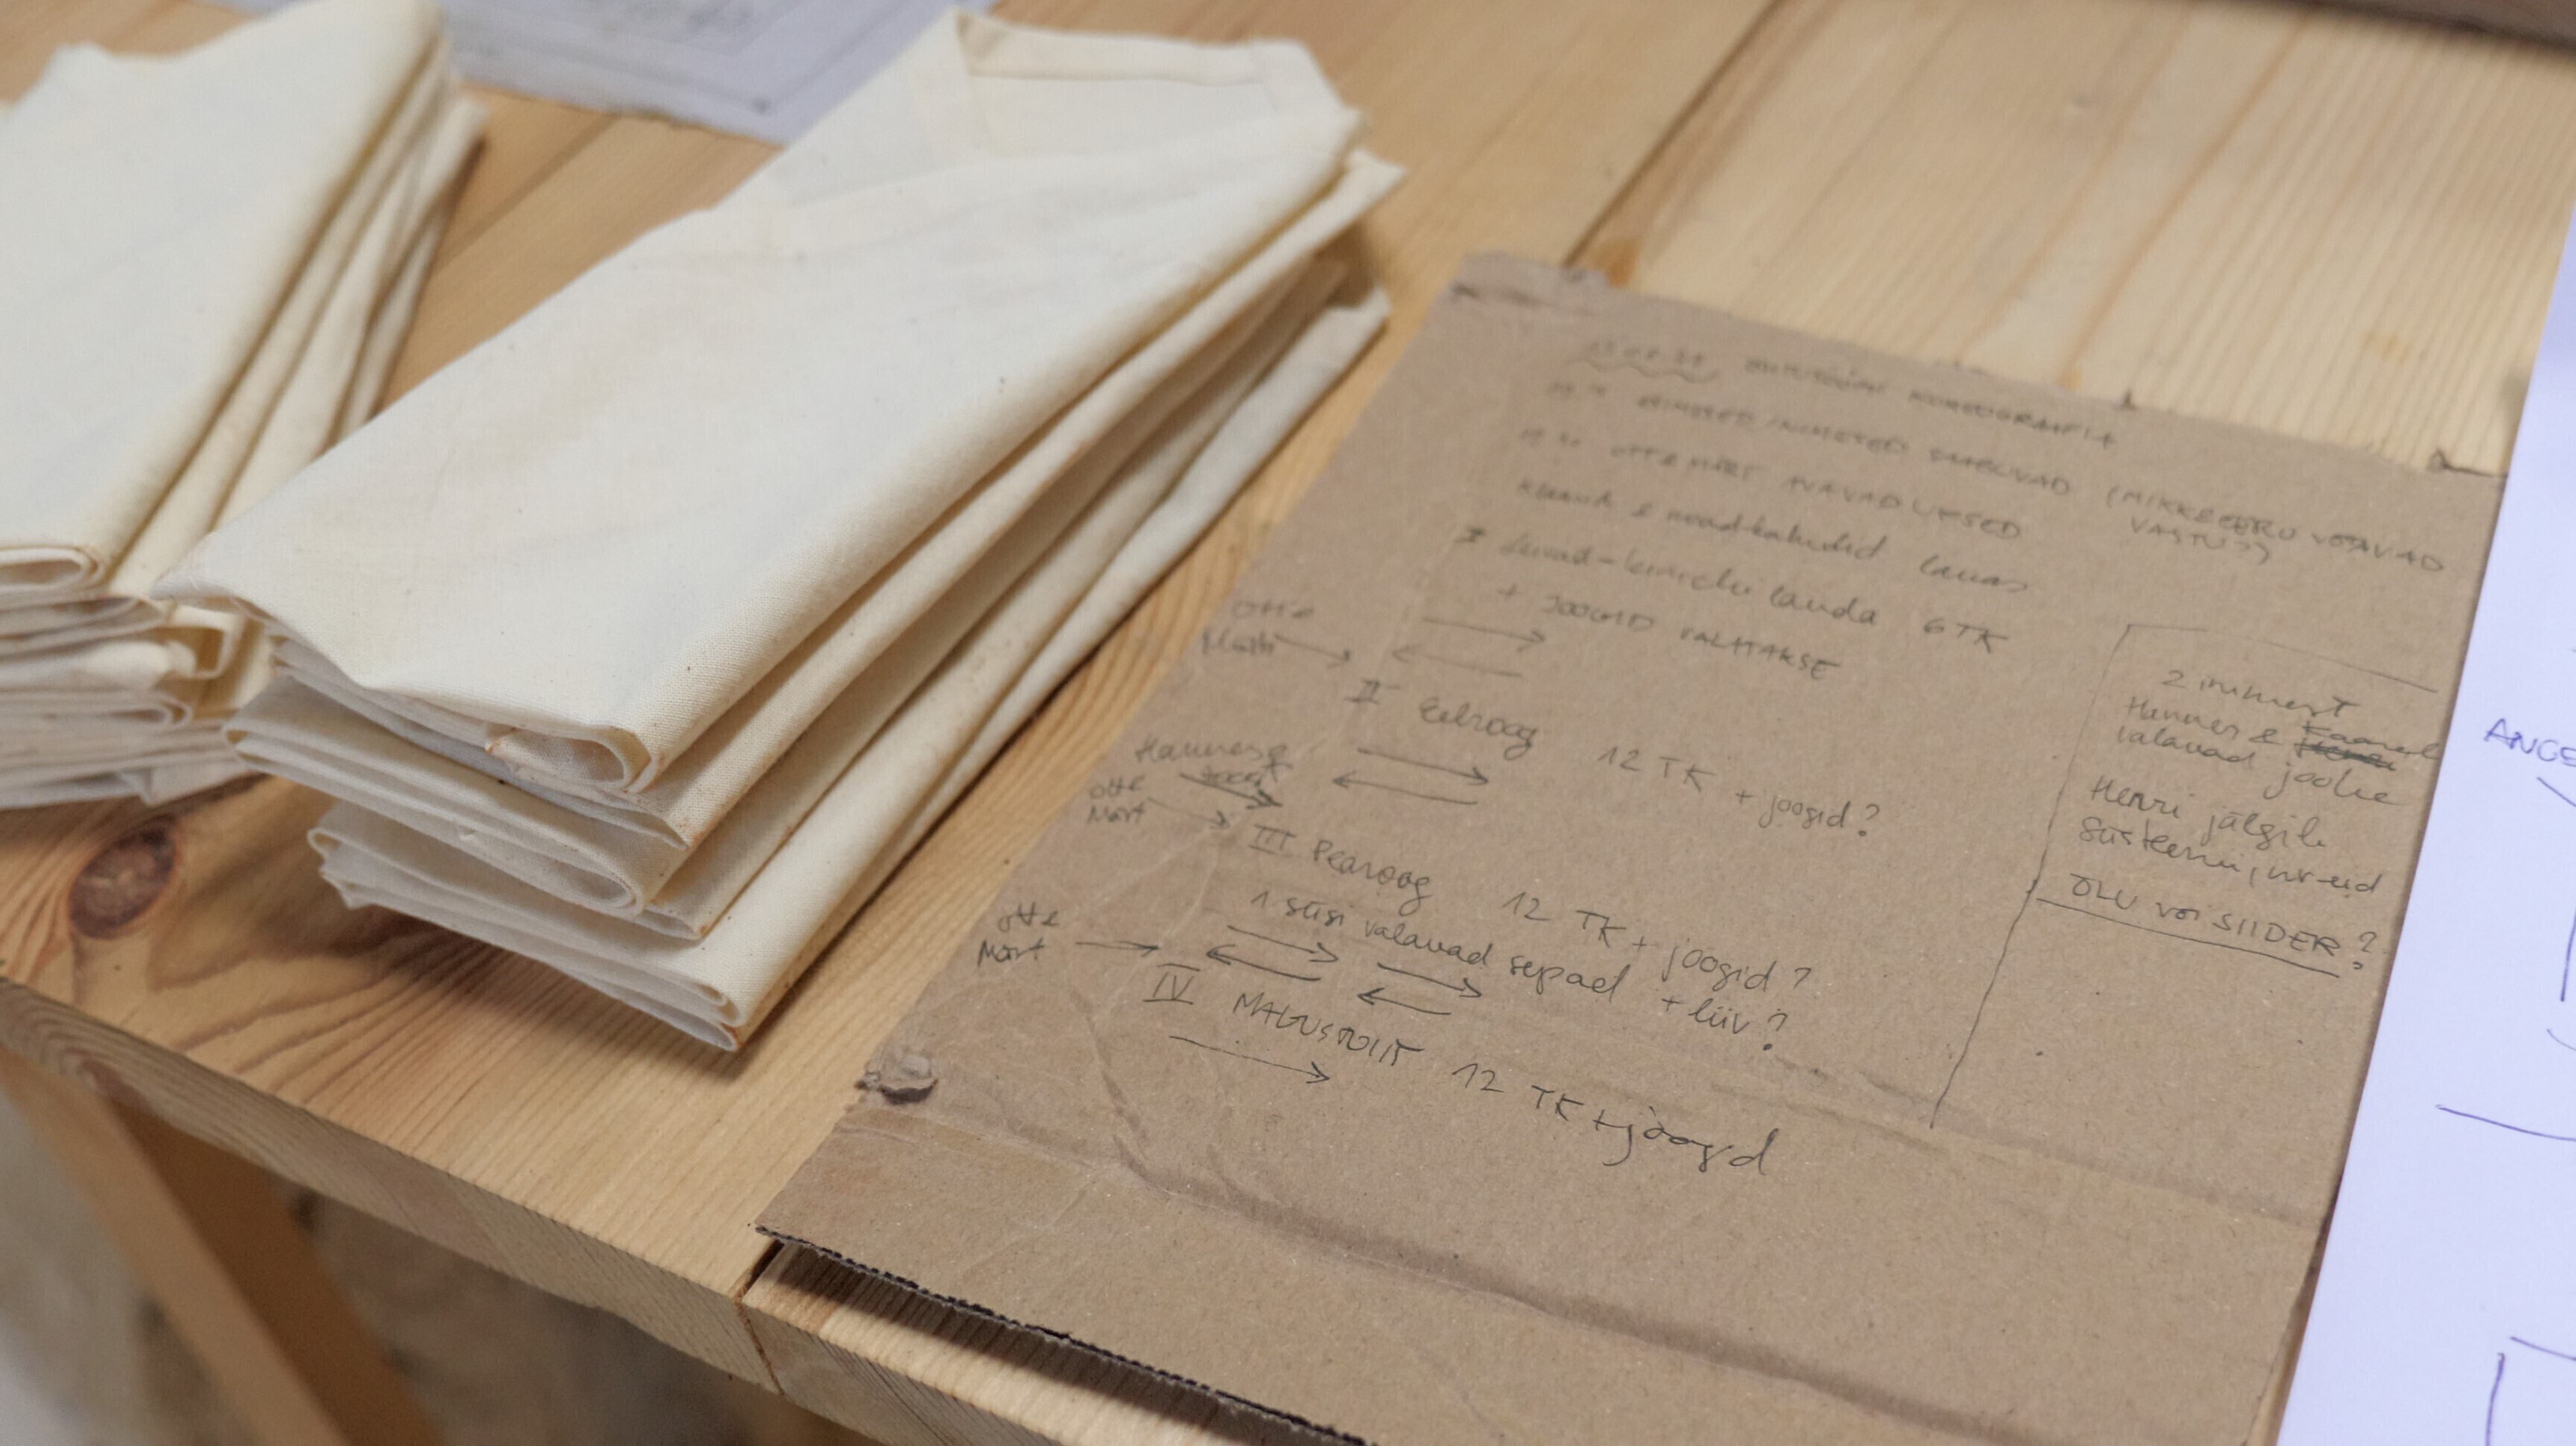 KOREOGRAAFIA
INIMESED SAABUVAD (MIKK & EERO VÕTAVAD
VASTU??)
OTT & MÄRT AVAVAD UKSED
lauas
I Leivad- lauda 6 TK
+ JOOGID VALATAKSE
Ott &
Märt
II Eelroog 12 TK + joogid?
Hannes &
Ott &
Märt
III Pearoog 12 TK + joogid?
1 süsi valavad sepad + liiv?
Ott &
Märt
IV MAGUSTOIT 12 TK + joogid
2 inimest
Hannes & Kaarel
valavad jooke
Henri jälgib
süsteemi, nr-eid
ÕLU või SIIDER?
ANGE